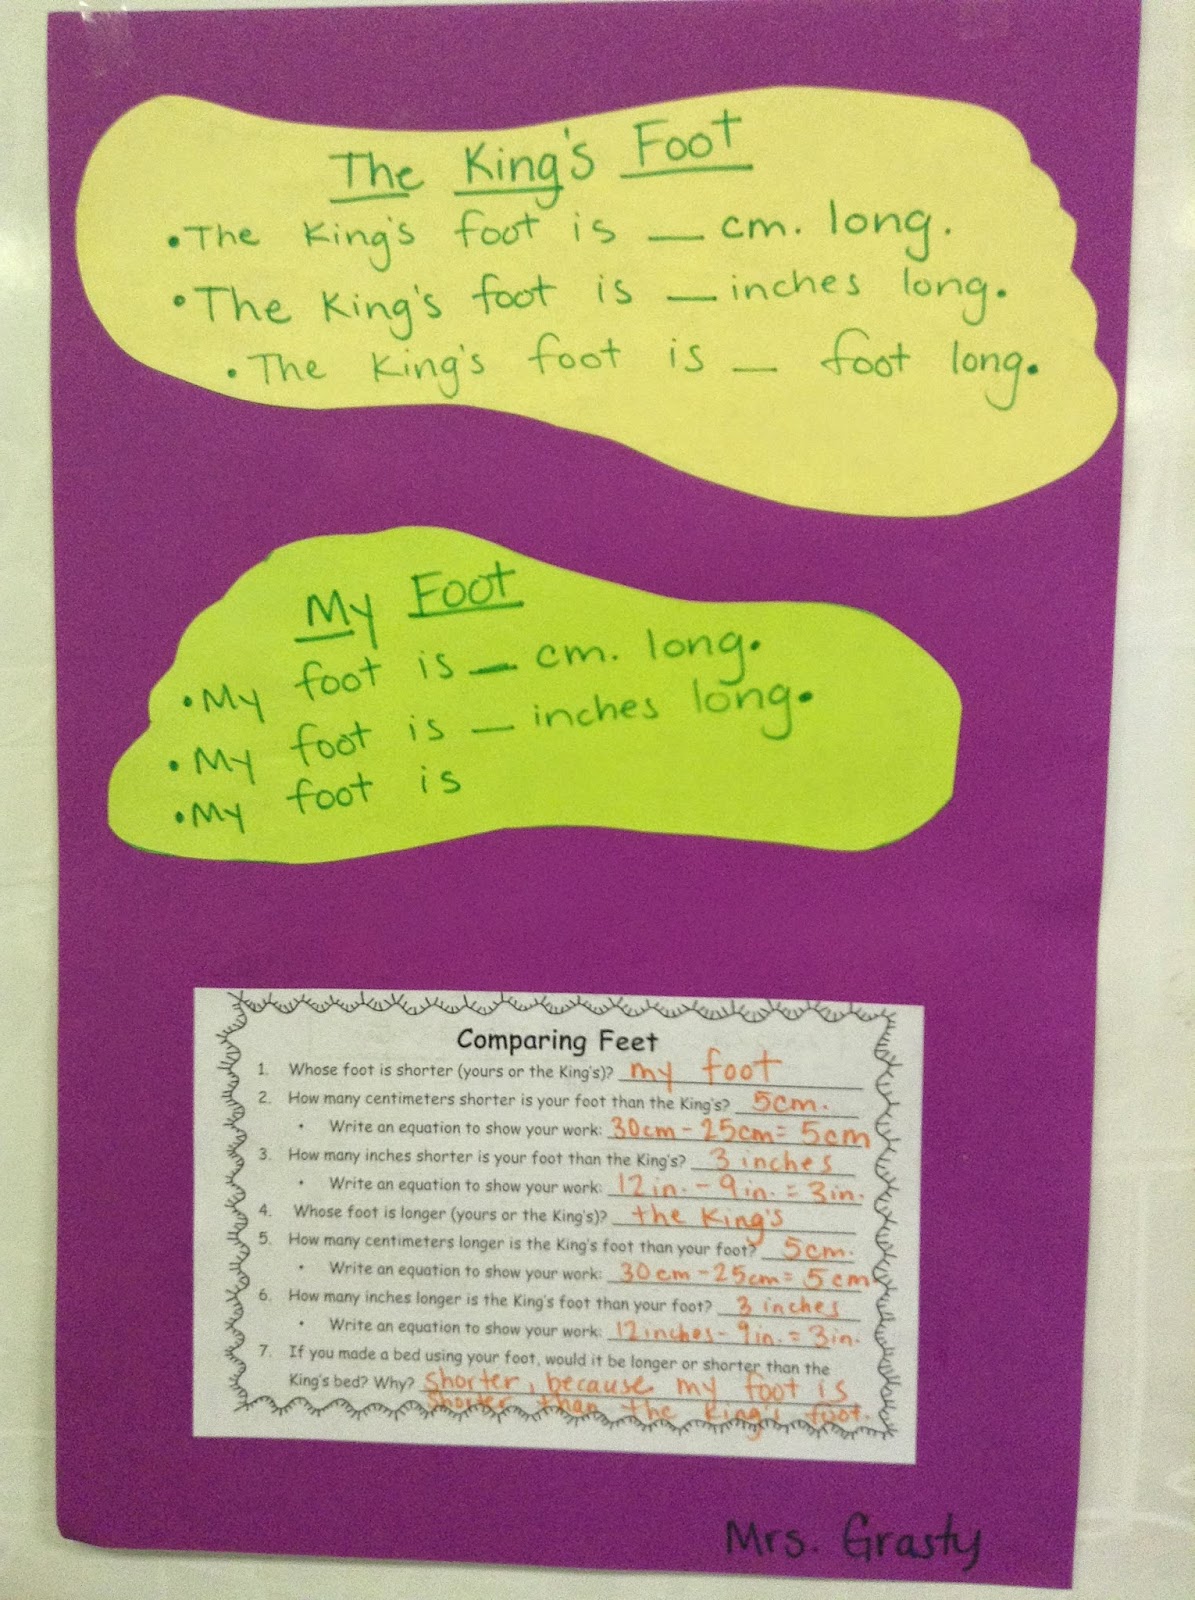 The King's Foot
• The King's foot is __ cm. long.
• The King's foot is __ inches long.
• The King's foot is __ foot long.
My Foot
• My foot is __ cm. long.
• My foot is __ inches long.
• My foot is
Comparing Feet
1. Whose foot is shorter (yours or the King's)? my foot
2. How many centimeters shorter is your foot than the King's? 5cm.
• Write an equation to show your work: 30cm - 25cm = 5cm
3. How many inches shorter is your foot than the King's? 3 inches
• Write an equation to show your work: 12 in. - 9 in. = 3 in.
4. Whose foot is longer (yours or the King's)? the King's
5. How many centimeters longer is the King's foot than your foot? 5cm.
• Write an equation to show your work: 30cm - 25cm = 5cm
6. How many inches longer is the King's foot than your foot? 3 inches
• Write an equation to show your work: 12 inches - 9 in. = 3 in.
7. If you made a bed using your foot, would it be longer or shorter than the
King's bed? Why? Shorter, because my foot is
shorter than the King's foot.
Mrs. Grasty